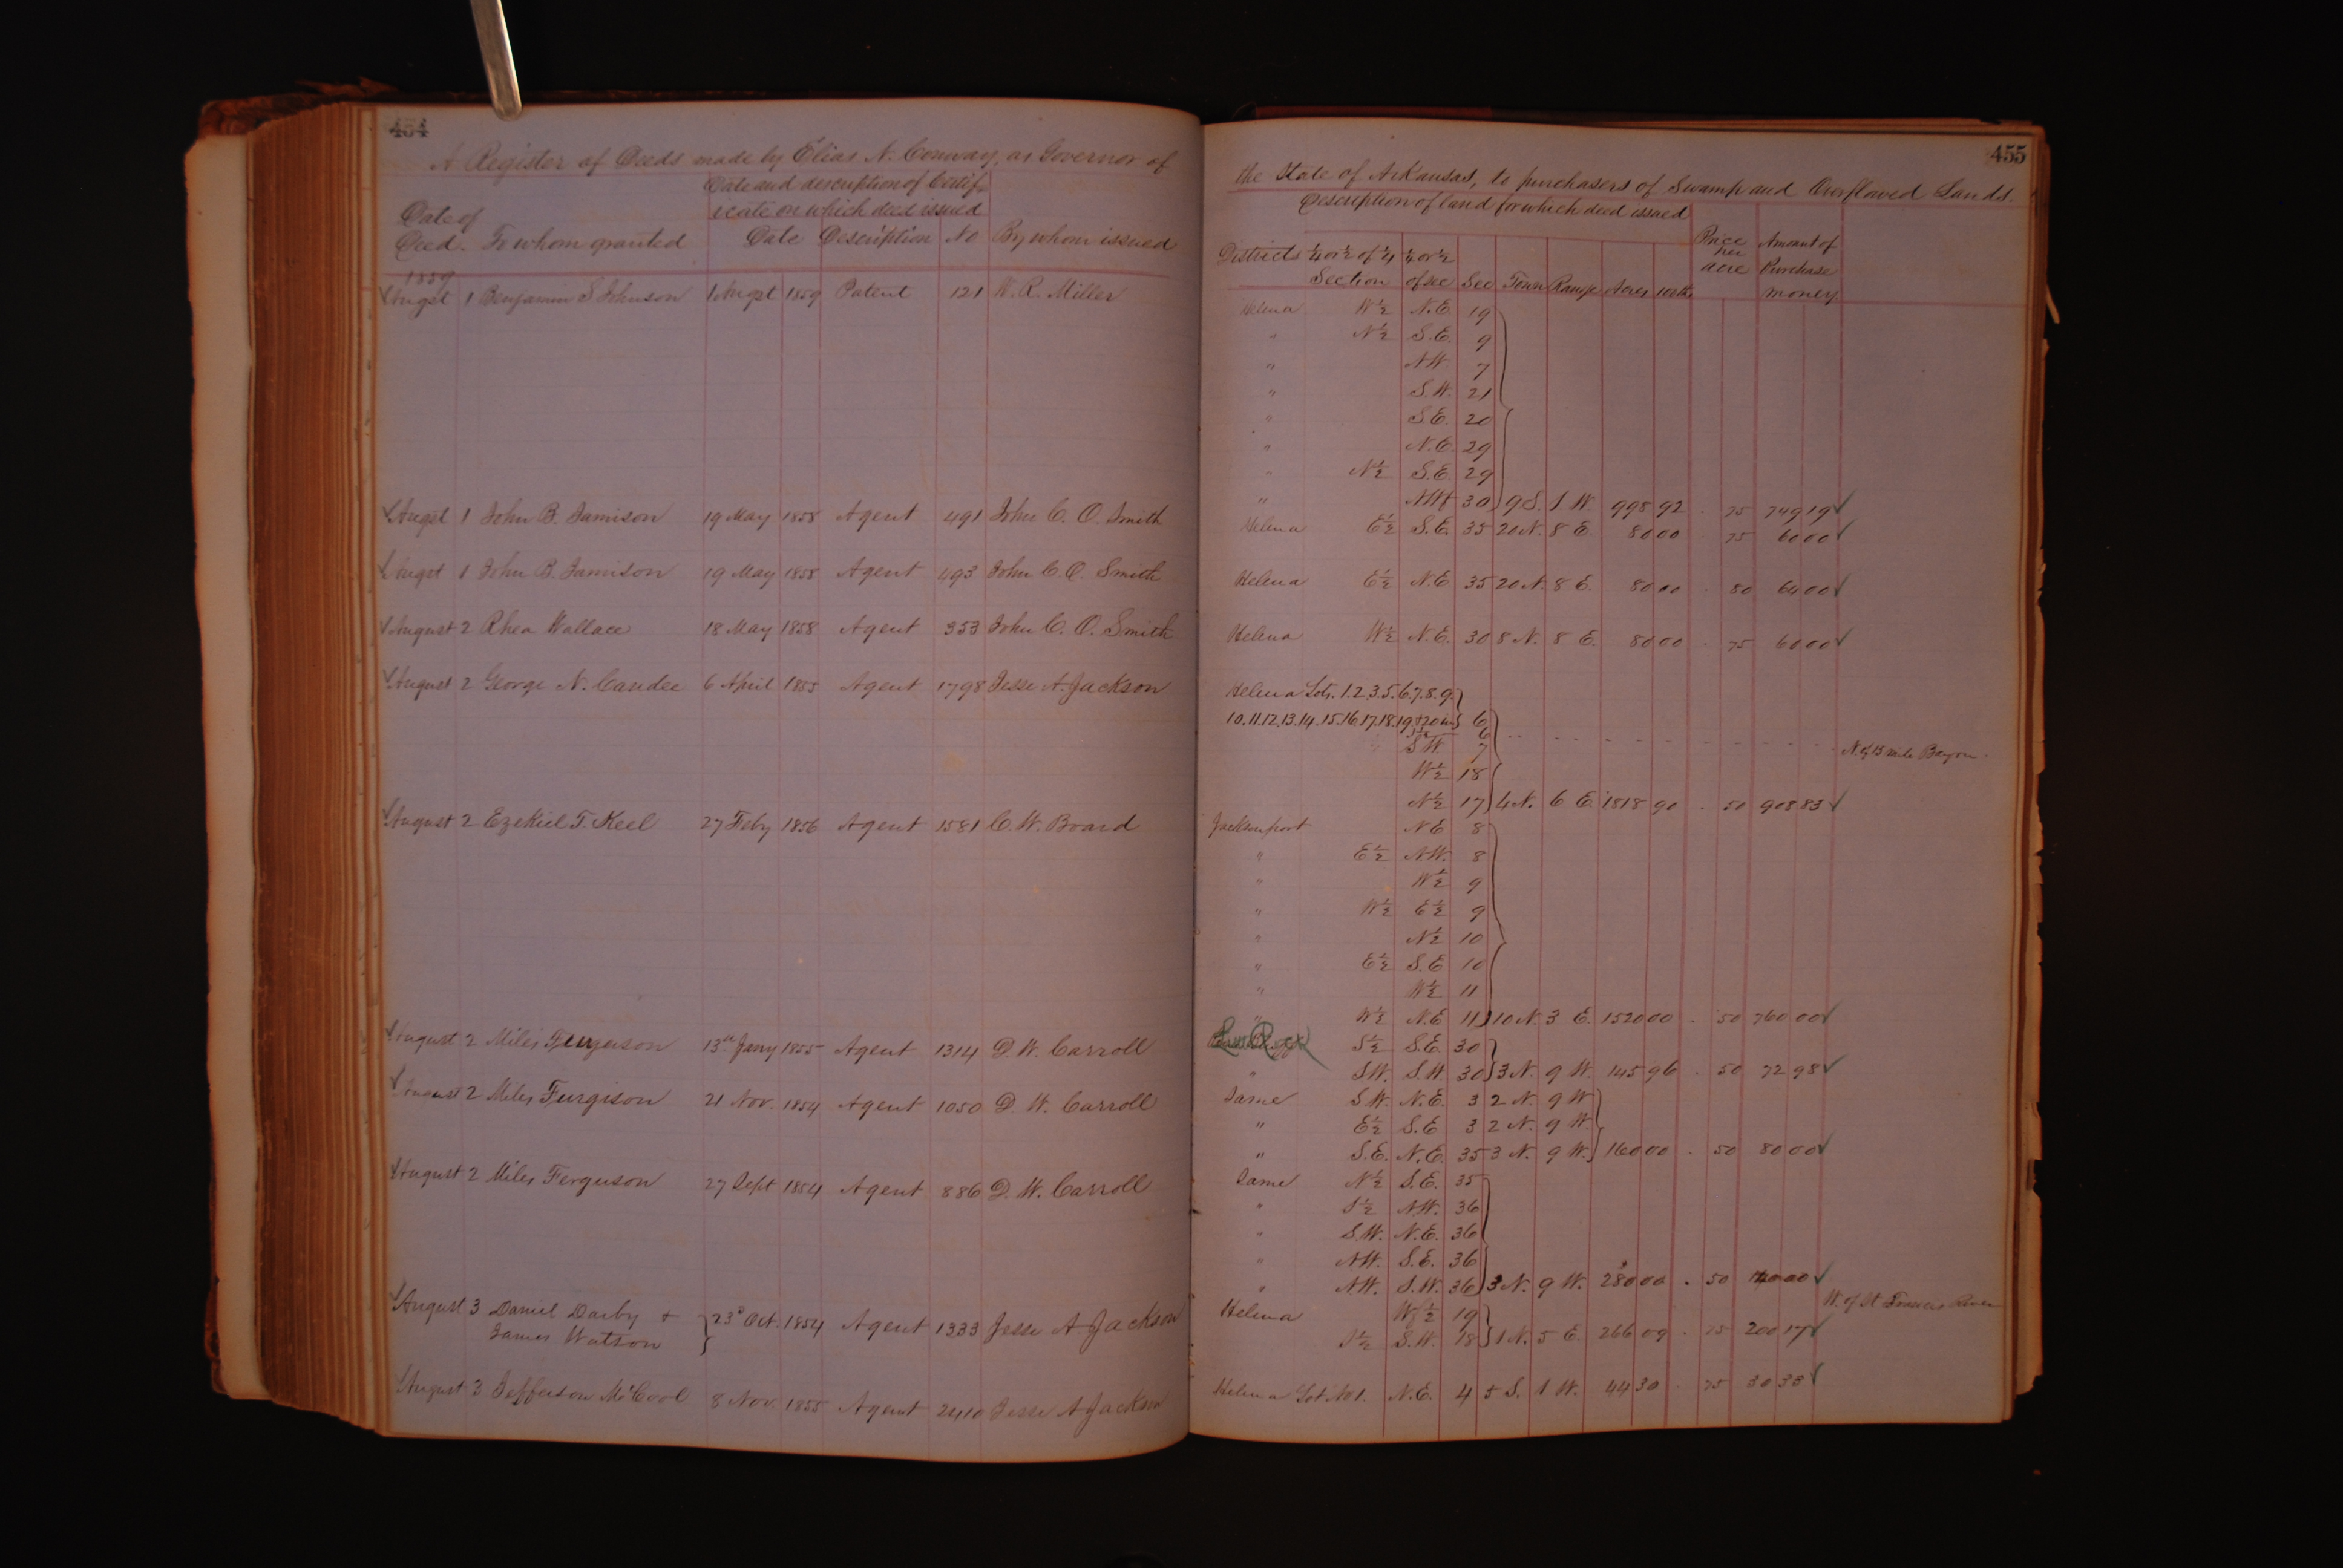 454
A Register of Deeds made by Elias N. Conway, as Governor of
Date and description of Certif-
icate on which deed issued
Date of
Deed. To whom granted Date Description No By whom issued
1859
Augst 1 Benjamin S Johnson 1 Augst 1859 Patent 121 W. R. Miller
Augst 1 John B. Jamison 19 May 1858 Agent 491 John C. O. Smith
Augst 1 John B. Jamison 19 May 1858 Agent 493 John C. O. Smith
August 2 Rhea Wallace 18 May 1858 Agent 353 John C. O. Smith
August 2 George N. Candee 6 April 1855 Agent 1798 Jesse A. Jackson
August 2 Ezekiel T. Keel 27 Feby 1856 Agent 1581 C. W. Board
August 2 Miles Ferguson 13th Jany 1855 Agent 1314 D. W. Carroll
August 2 Miles Furgison 21 Nov. 1854 Agent 1050 D. W. Carroll
August 2 Miles Ferguson 27 Sept 1854 Agent 886 D. W. Carroll
August 3 Daniel Darby +
James Watson 23d Oct. 1854 Agent 1333 Jesse A Jackson
August 3 Jefferson McCool 8 Nov. 1855 Agent 2410 Jesse A Jackson
455
the State of Arkansas, to purchasers of Swamp and Overflowed Lands.
Description of land for which deed issued
Districts ¼ or ½ of ¼ ¼ or ½ Price per Amount of
Section of sec Sec Town Range Acres 100ths acre Purchase
money
Helena W½ N.E. 19
" N½ S.E. 9
" N.W. 7
" S.W. 21
" S.E. 20
" N.E. 29
" N½ S.E. 29
" NW 30 9 S. 1 W. 998 92 . 75 749 19
Helena E½ S.E. 35 20 N. 8 E. 80 00 . 75 60 00
Helena E½ N.E. 35 20 N. 8 E. 80 00 . 80 64 00
Helena W½ N.E. 30 8 N. 8 E. 80 00 . 75 60 00
Helena Lots. 1.2.3.5.6.7.8.9.
10.11.12.13.14.15.16.17.18.19 + 20 in 6
6
" S.W. 7 N. of 15 mile Bayou
W½ 18
N½ 17 4 N. 6 E. 1818 90 . 50 908 83
Jacksonport N.E 8
" E½ N.W. 8
" W½ 9
" W½ E½ 9
" N½ 10
" E½ S.E 10
" W½ 11
" W½ N.E 11 10 N. 3 E. 1520 00 . 50 760 00
Rock S½ S.E. 30
" S.W. S.W. 30 3 N. 9 W. 145 96 . 50 72 98
Same S.W. N.E. 3 2 N. 9 W
" E½ S.E 3 2 N. 9 W.
" S.E. N.E. 35 3 N. 9 W. 160 00 . 50 80 00
Same N½ S.E. 35
" S½ N.W. 36
" S.W. N.E. 36
" N.W. S.E. 36
" N.W. S.W. 36 3 N. 9 W. 280 00 . 50 140 00
Helena Wf½ 19 W. of St Francis River
S½ S.W. 18 1 N. 5 E. 266 09 . 75 200 17
Helena Lot No 1. N.E. 4 5 S. 1 W. 44 30 . 75 30 33